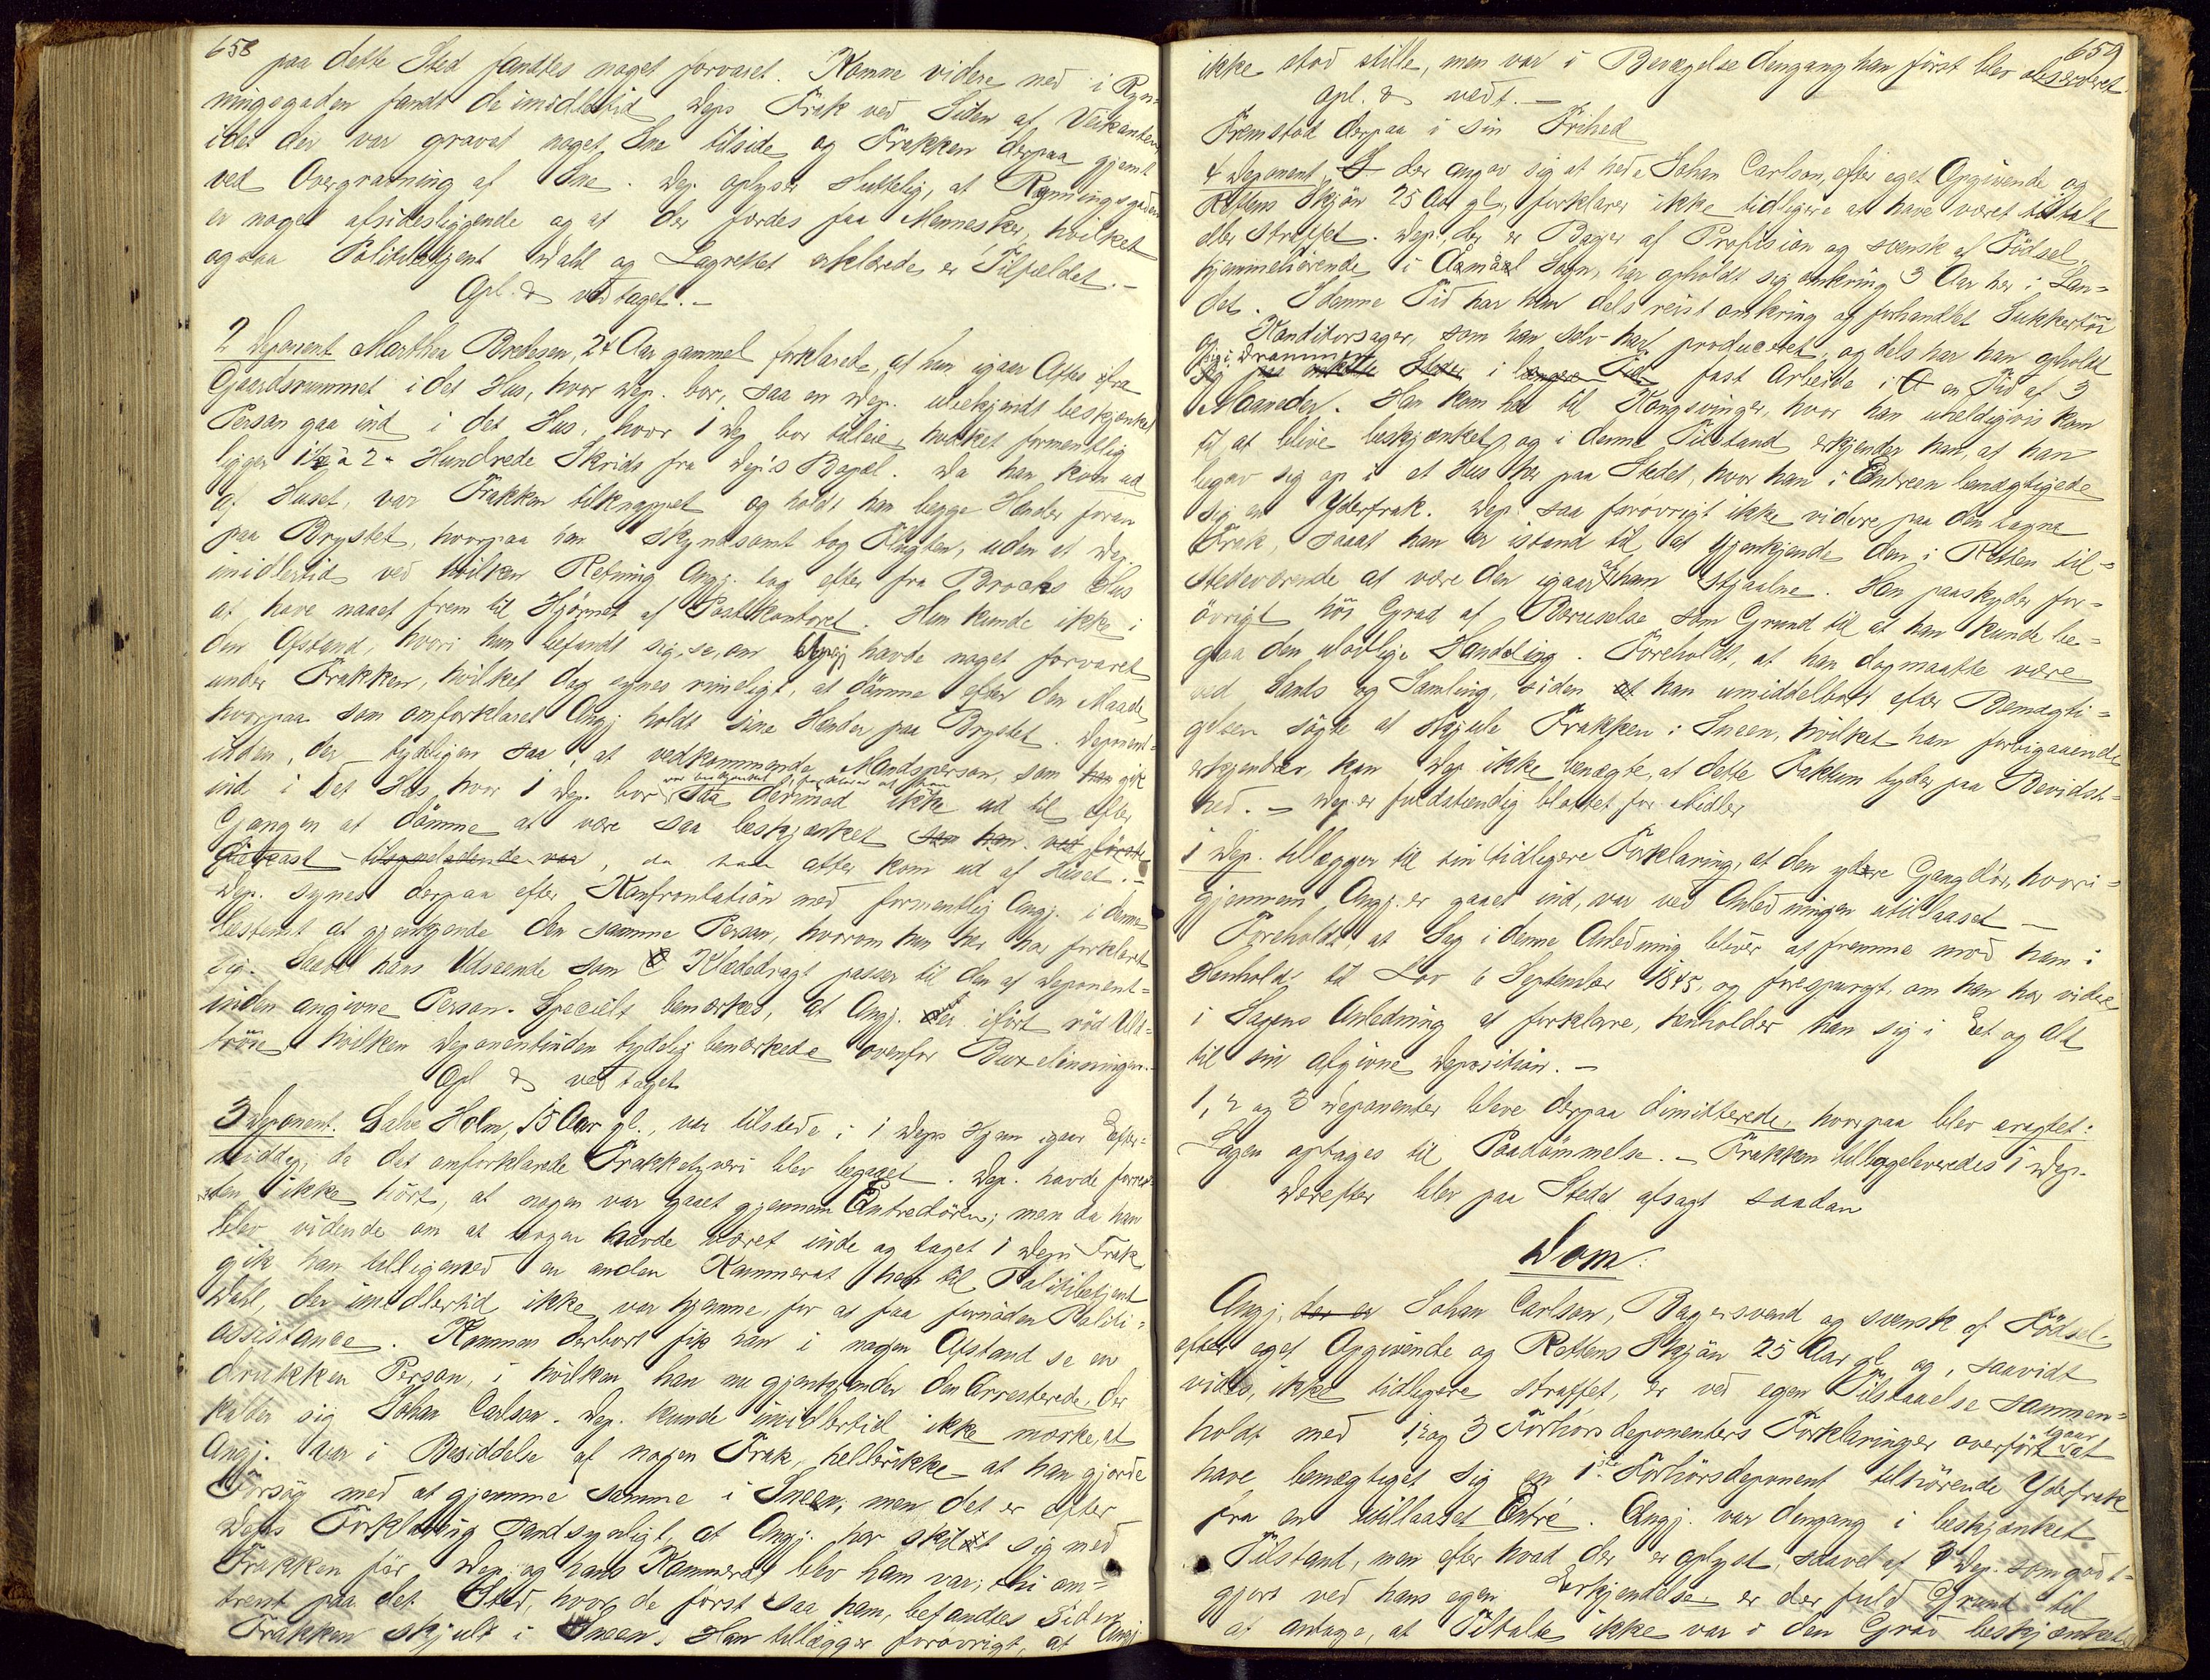 658
paa dette Sted fandtes noget forvaret. Komne videre ned i Ryn-
ningsgaden fandt de imidlertid Deps Frak ved Siden af Veikanten
idet der var gravet noget Sne tilside og Frakken derpaa gjemt
ved Overgravning af Sne. Dep. oplyser sluttelig, at Rynningsgaden
er noget afsidesliggende og at der færdes faa Mennesker, hvilket
ogsaa Politibetjent Dahl og Lagrettet erklærede er Tilfældet.-
Opl. & vedtaget.-
2 Deponent Marthea Bredesen, 24 Aar gammel forklarede, at hun igaar Aftes ifra
Gaardsrummet i det Hus, hvor Dep. bor, saa en Dep. ubekjendt beskjænket
Person gaa ind i det Hus, hvor 1 Dep bor tilleie, hvilket formentlig
ligger 1½ à 2- Hundrede Skridt fra Dep's Bopæl. Da han kom ud
af Huset, var Frakken tilknappet og holdt han begge Hænder foran
paa Brystet, hvorpaa han skyndsomt tog Flugten, uden at Dep.
imidlertid ved hvilken Retning Angj. tog efter fra Brochs Hus
at have naaet frem til Hjørnet af Postkontoret. Hun kunde ikke i
den Afstand, hvori hun befandt sig, se, om Angj havde noget forvaret
under Frakken, hvilket dog synes rimeligt, at dømme efter den Maade,
hvorpaa som omforklaret Angj holdt sine Hænder paa Brystet. Deponent-
inden, der tydeligen saa, at vedkommende Mandsperson, som han gik
ind i det Hus, hvor 1 Dep. bor, var beskjænket, forklarer at han
saa derimod ikke ud til efter
Gangen at dømme at være saa beskjænket som han ved første
Øiekast tilsyneladende var, da han atter kom ud af Huset.-
Dep. synes derpaa efter Konfrontation med formentlig Angj. i denne
bestemt at gjenkjende den samme Person, hvorom hun her har forklaret
sig. Saavel hans Udseende som Klædedragt passer til den af Deponent-
inden angivne Person. Specielt bemærkes, at Angj. er iført rød Uld-
trøie, hvilken Deponentinden tydelig bemærkede ovenfor Buxelinningen.-
Opl & vedtaget
3 Deponent. Halvor Holm, 15 Aar gl., var tilstede i 1 Deps Hjem igaar Efter-
middag, da det omforklarede Frakketyveri blev begaaet. Dep. havde forres-
ten ikke hørt, at nogen var gaaet gjennem Entredøren; men da han
blev vidende om at nogen havde været inde og taget 1 Deps Frak,
gik han tilligemed en anden Kammerat hen til Politibetjent
Dahl, der imidlertid ikke var hjemme, for at faa fornøden Politi-
assistance. Kommen derbort fik han i nogen Afstand se en
drukken Person, i hvilken han nu gjenkjender den Arresterede, der
kalder sig Johan Carlson. Dep. kunde imidlertid ikke mærke, at
Angj. var i Besiddelse af nogen Frak, hellerikke at han gjorde
Forsøg med at gjemme samme i Sneen, men det er efter
Deps Forklaring sandsynligt, at Angj. har skilt sig med
Frakken før Dep. og hans Kammerat blev ham var; thi om-
trent paa det Sted, hvor de først saa ham, befandtes siden
Frakken skjult i Sneen. Han tillægger forøvrigt, at Angj
659
ikke stod stille, men var i Bevægelse dengang han først blev observeret
opl. & vedt.-
Fremstod derpaa i sin Frihed
4 Deponent, der angav sig at hede Johan Carlson, efter eget Opgivende og
Rettens Skjøn 25 Aar gl., forklarer ikke tidligere at have været tiltalt
eller straffet. Dep., der er Bager af Profession og svensk af Fødsel,
hjemmehørende i Aamaal Sogn, har opholdt sig omkring 3 Aar her i Lan-
det. I denne Tid har han dels reist omkring og forhandlet Sukkertøi
og Konditorsager, som han selv har produceret, og dels har han opholdt
sig i Drammen
sig paa enkelte Steder i længere Tid, fast Arbeide i en Tid af 3
Maaneder. Han kom her til Kongsvinger, hvor han uheldigvis kom
til at blive beskjænket, og i denne Tilstand erkjender han, at han
begav sig op i et Hus her paa Stedet, hvor han i Entreen bemægtigede
sig en Yderfrak. Dep. saa forøvrigt ikke videre paa den tagne
Frak, saaat han er istand til, at gjenkjende den i Retten til-
stedeværende at være den igaar af ham stjaalne. Han paaskyder for-
øvrigt høi Grad af Beruselse som Grund til at han kunde be-
gaa den ulovlige Handling. Foreholdt, at han dog maatte være
ved Sands og Samling, siden han umiddelbart efter Bemægti-
gelsen søgte at skjule Frakken i Sneen, hvilket han forbigaaende
erkjender, kan Dep ikke benægte, at dette Faktum tyder paa Bevidst-
hed.- Dep. er fuldstændig blottet for Midler
1 Dep. tillægger til sin tidligere Forklaring, at den ydre Gangdør, hvori-
gjennem Angj. er gaaet ind, var ved Anledningen utillaaset-
Foreholdt at Sag i denne Anledning bliver at fremme mod ham i
Henhold til Lov 6 September 1845, og forespurgt, om han har videre
i Sagens Anledning at forklare, henholder han sig i Et og Alt
til sin afgivne Deposition.-
1, 2 og 3 Deponenter bleve derpaa dimitterede, hvorpaa blev eragtet:
Sagen optages til Paadømmelse.- Frakken tilbageleveredes 1 Dep.
Derefter blev paa Stedet afsagt saadan
Dom:
Angj. der er Johan Carlson, Bagersvend og svensk af Fødsel
efter eget Opgivende og Rettens Skjøn 25 Aar gl. og, saavidt
vides, ikke tidligere straffet, er ved egen Tilstaaelse sammen-
holdt med 1, 2 og 3 Forhørsdeponenters Forklaringer overført igaar at
have bemægtiget sig en 1ste Forhørsdeponent tilhørende Yderfrak
fra en utillaaset Entré. Angj. var dengang i beskjænket
Tilstand, men efter hvad der er oplyst, saavel af 2 Dep. som godt-
gjort ved hans egen Erkjendelse er der fuld Grund til
at antage, at Tiltalte ikke var i den Grad beskjænket